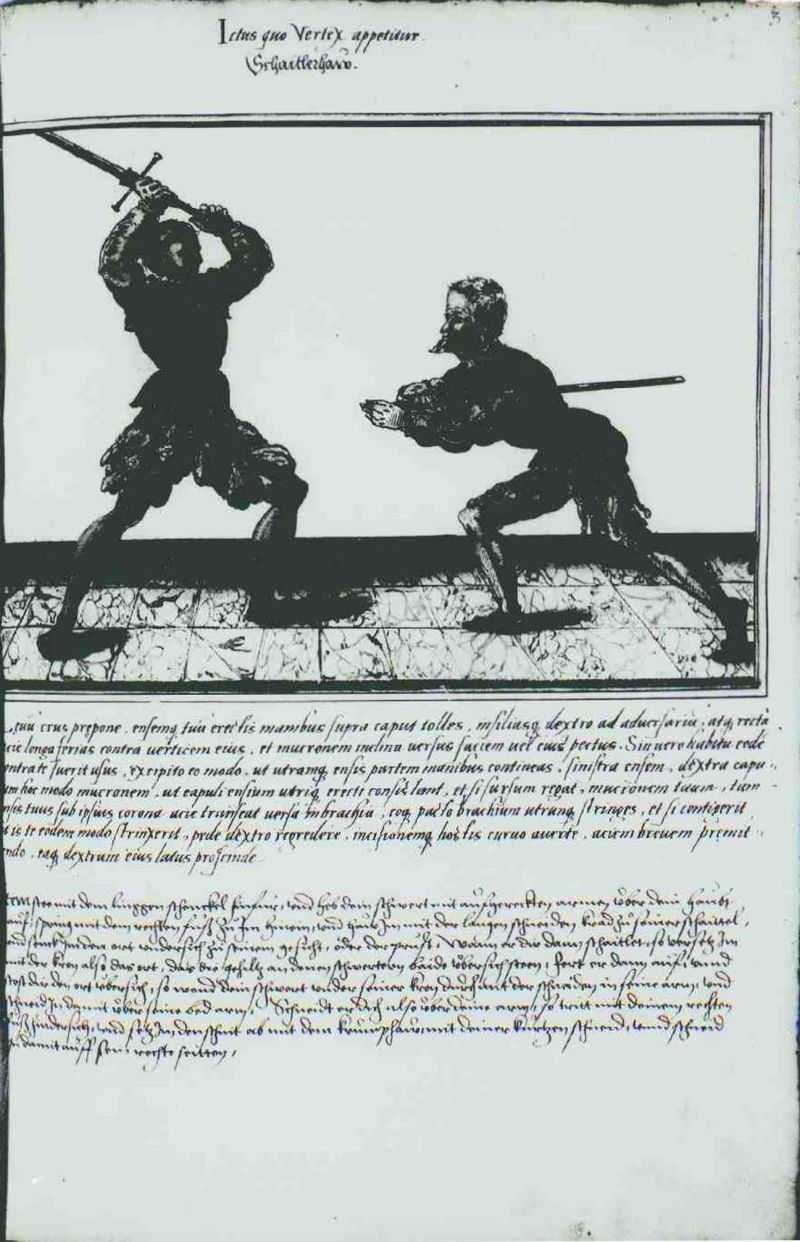 3
Ictus quo Vertex appetitur.
Schaitlerhauw.
crus prepone, ensemq tuu erectis manibus supra caput tolles, insiliasq dextro ad adversariu, atq recta
acie longa ferias contra verticem eius, et mucronem inclina versus faciem uel eius pectus. Sin uero habitu eode
contra te fuerit usus, excipito eo modo, ut utramq ensis partem manibus contineas, sinistra ensem, dextra capu
modo mucronem, ut capuli ensium utriq erecti consistant, et si sursum regat, mucronem tuum, tum
ensis tuus sub ipsius corona acie transeat versa in brachia, eoq pacto brachium utrunq stringes, et si contigerit
ut is te eodem modo strinxerit, pede dextro regredere, incisionemq hostis curuo auerte, aciem breuem premit
ndo, eaq dextrum eius latus proscinde.
Item stee mit dem linggen schenckel finfür, vnd heb dein schwert mit aufgereckten armen über dein haubt
spring mit dem rechten fuß zu Im hinein, vnd haw Im mit der langen schneiden krad zu seiner schaittel,
vnd senck In den ort vndersich zu seinem gesicht, oder der prust, Wann er dir dann schaitlet, so versetz Im
mit der kron also das ort, das die gehiltz an denen schwertern baide übersich steen, fert er dann auf, vnnd
stost dir den ort übersich, so wend dein schwert vnder seiner kron durch mit der schneiden in seine arm, vnd
schneid In damit über seine bed arm, Schneidt er dich also über deine arm, so tritt mit deinem rechten
fuß hindersich, vnd setz In den schnit ab mit dem krumphauw, mit deiner kurtzen schneid, vnnd schneid
In damit auff sein rechte seitten,